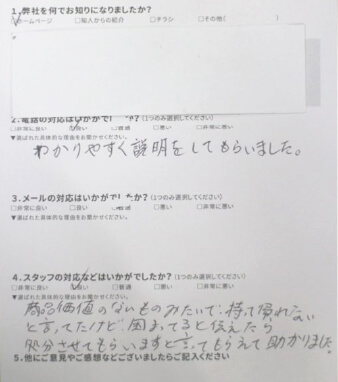 1.弊社を何でお知りになりましたか?
ホームページ □知人からの紹介 □チラシ □その他(
2.電話の対応はいかがでし か?(1つのみ選択してください)
□非常に良い 良い □普通 □悪い □非常に悪い
▼選ばれた具体的な理由をお聞かせください。
わかりやすく説明をしてもらいました。
3.メールの対応はいかがでし か?(1つのみ選択してください)
□非常に良い □良い 普通 □悪い □非常に悪い
▼選ばれた具体的な理由をお聞かせください。
4.スタッフの対応などはいかがでしたか?(1つのみ選択してください)
□非常に良い 良い □普通 □悪い □非常に悪い
▼選ばれた具体的な理由をお聞かせください。
商品価値のないものみたいで持って帰れない
と言ってたけど困まってると伝えたら
処分させてもらいますと言ってもらえて助かりました
5.他にご意見やご感想などございましたらご記入ください